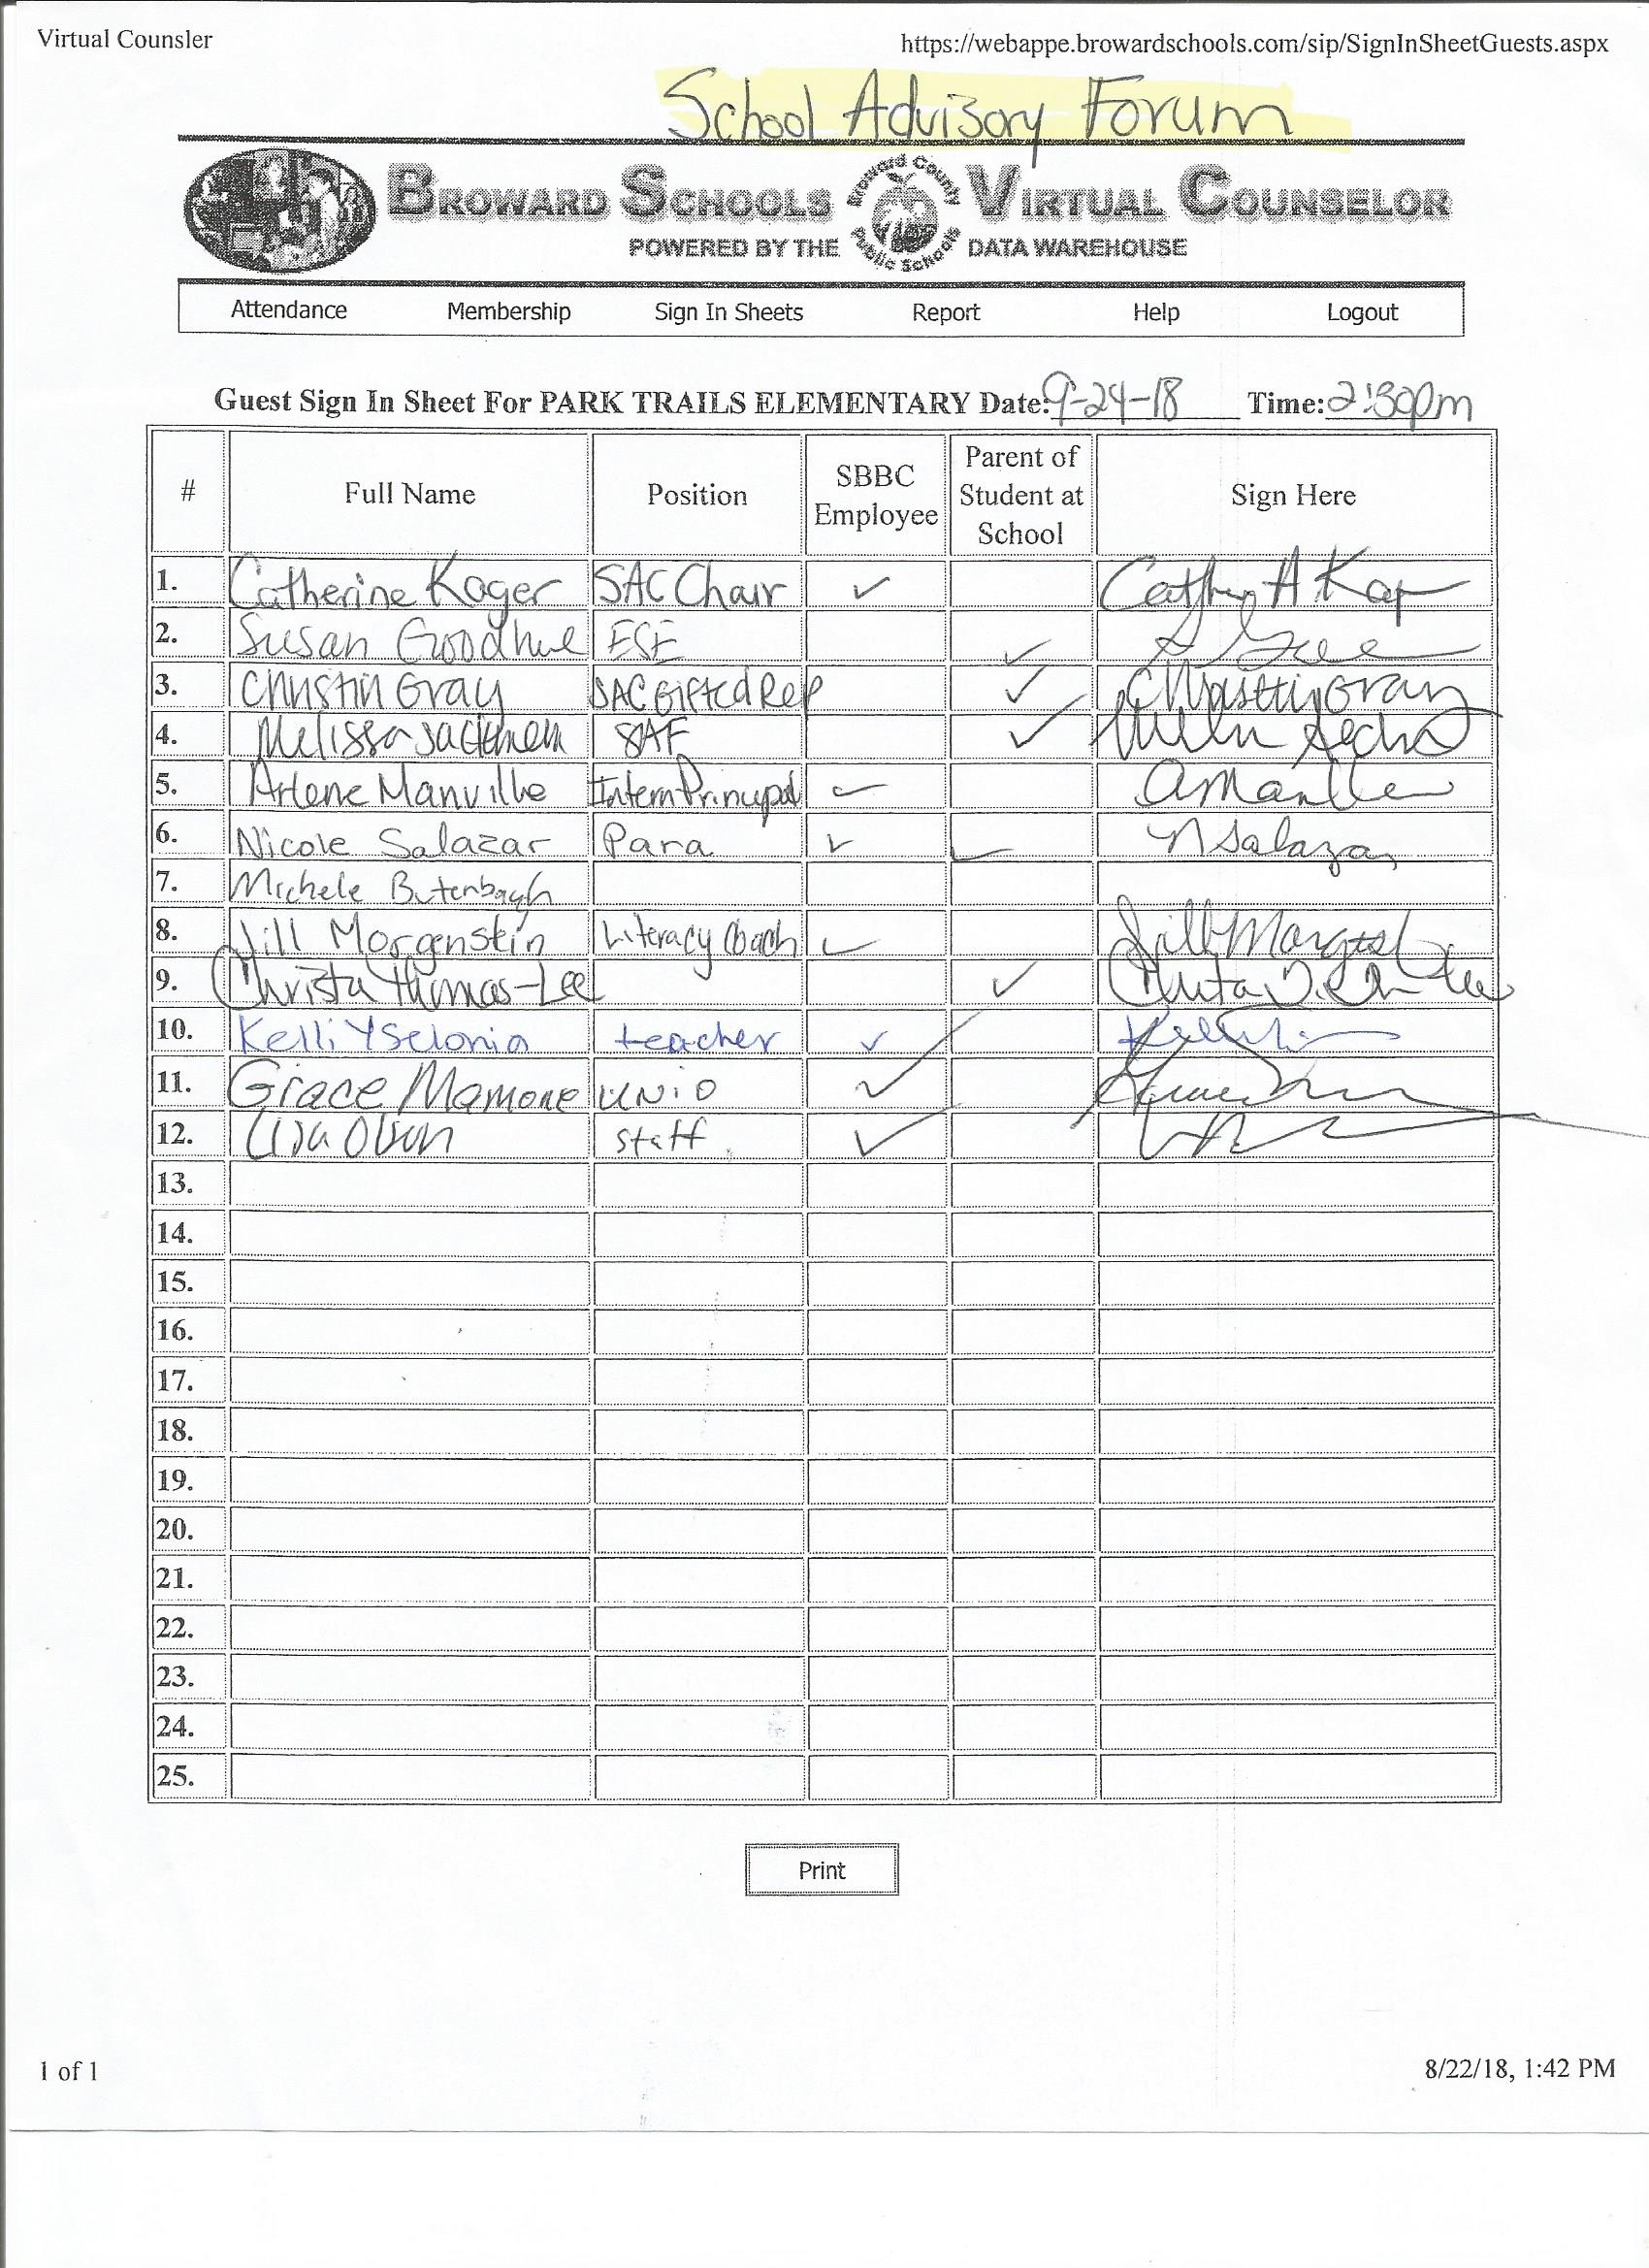 Virtual Counsler https://webappe.browardschools.com/sip/SignInSheetGuests.aspx
School Advisory Forum
BROWARD SCHOOLS Broward County Public Schools VIRTUAL COUNSELOR
POWERED BY THE DATA WAREHOUSE
Attendance Membership Sign In Sheets Report Help Logout
Guest Sign In Sheet For PARK TRAILS ELEMENTARY Date: 9-24-18 Time: 2:30pm
# Full Name Position SBBC Employee Parent of Student at School Sign Here
1. Catherine Kager SAC Chair ✓
2. Susan Goodhue ESE ✓
3. Christin Gray SAC Gifted Rep ✓ Christin Gray
4. Melissa SAF ✓
5. Arlene Manville Intern Principal ✓
6. Nicole Salazar Para ✓ ✓ N Salazar
7. Michele
8. Jill Morgenstein Literacy Coach ✓
9. Christa Thomas-Lee ✓
10. Kelli Yselonia teacher ✓
11. Grace Mamone UNiO ✓
12. Lisa Olson Staff ✓
13.
14.
15.
16.
17.
18.
19.
20.
21.
22.
23.
24.
25.
Print
1 of 1 8/22/18, 1:42 PM